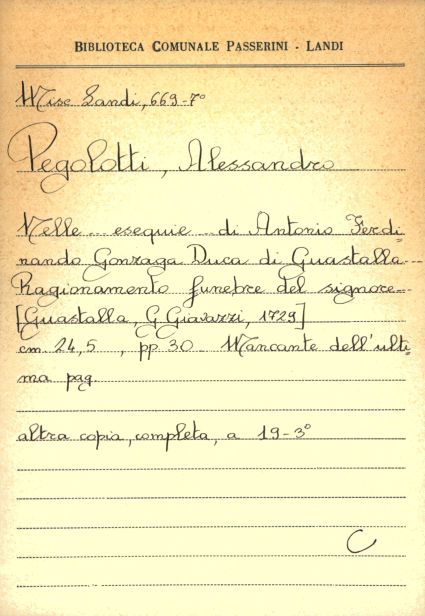 BIBLIOTECA COMUNALE PASSERINI - LANDI
Misc Landi, 669-7°
Pegolotti, Alessandro
Nelle esequie di Antonio Ferdi=
nando Gonzaga Duca di Guastalla
Ragionamento funebre del signore
[Guastalla, G Giavazzi, 1729]
cm 24,5 , pp 30 Mancante dell'ulti=
ma pag.
altra copia, completa, a 19-3°
C